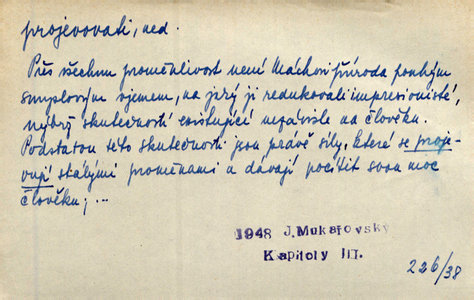 projevovati, ned.
Přes všechnu proměnlivost není Máchovi příroda pouhým
smyslovým vjemem, na jaký ji redukovali impresionisté,
nýbrž skutečností existující nezávisle na člověku.
Podstatou této skutečnosti jsou právě síly, které se proje-
vují stálými proměnami a dávají pocítit svou moc
člověku; ...
1948 J. Mukařovský
Kapitoly III.
226/38